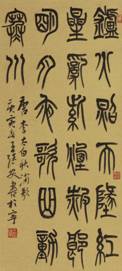 鑪火照天地紅
星亂紫煙赧郎
明月夜歌曲動
寒川
唐李太白秋浦歌
庚寅